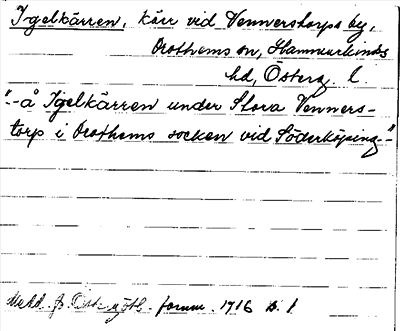 Igelkärren, kärr vid Vennerstorps by,
Drothems sn, Hammarkinds
hd, Österg. l.
"- å Igelkärren under Stora Venners-
torp i Drothems socken vid Söderköping -"
Medd. fr. Östergötl. fornm. 1916 s. 1